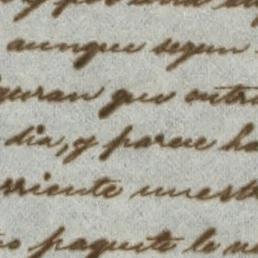 aunque segun
guran que entra
dia, y parece ha
rriente nuest
paquete le